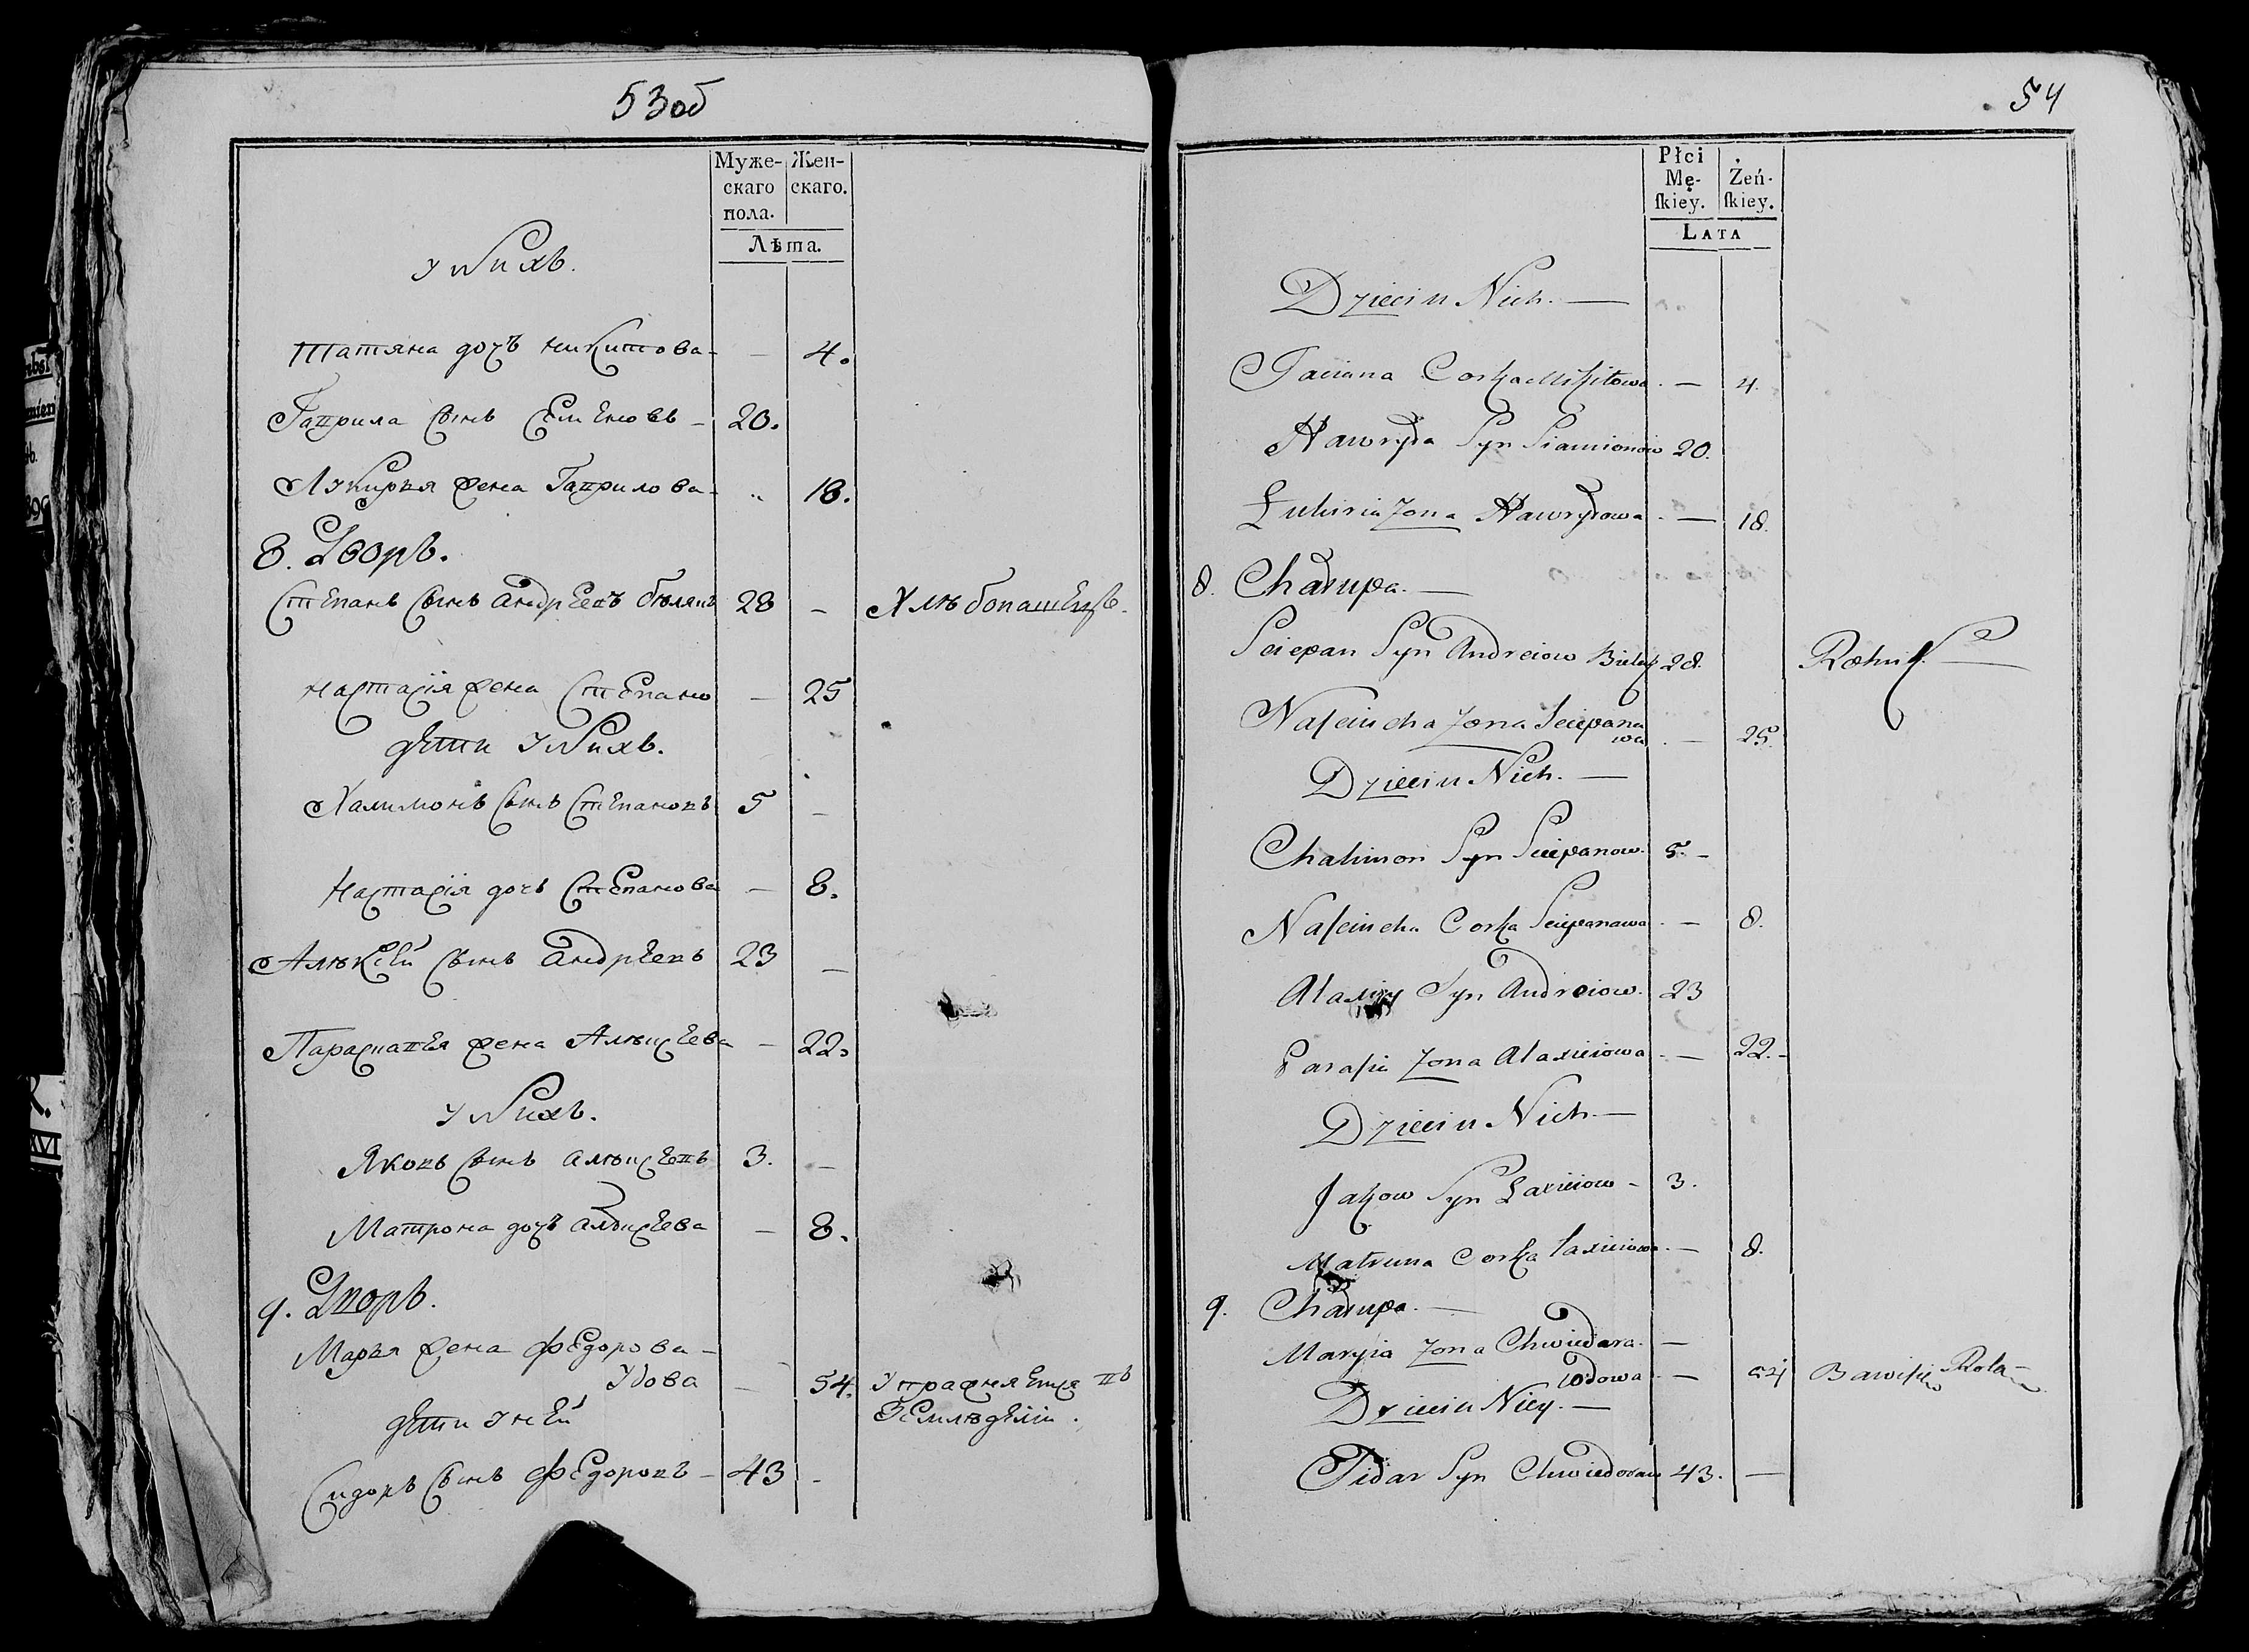 53об
Муже-
скаго
пола.
Жен-
скаго.
Лѣта.
У нихъ.
Татяна дочъ Никитова - — 4.
Гаврила сынъ Семеновъ - 20.
Лукиръя жена Гаврилова - „ 18.
8. Дворъ.
Степанъ сынъ Андреевъ Белякъ 28 — Хлѣбопашецъ.
Настасія жена Степано — 25
дети у нихъ.
Халимонъ сынъ Степановъ 5 —
Настасія дочъ Степанова — 8.
Алѣксей сынъ Андреевъ 23 —
Парасцавея жена Алѣксеева — 22.
У нихъ.
Яковъ сынъ Алѣксеевъ 3. —
Матрона дочъ Алѣксеева — 8.
9. Дворъ.
Маръя жена Федорова -
Удова — 54. Упражняется въ
дети у ней Земледеліи.
Сидоръ сынъ Федоровъ - 43 -
54
Płci
Mę-
ſkiey.
Żeń-
ſkiey.
LATA
Dzieci u Nich. —
Taciana Corka Mikitowa. — 4.
Hawryła Syn Siamionow 20.
Łukiria Zona Hawryłowa. — 18.
8. Chałupa. —
Sciepan Syn Andreiow Bielak 28. Rolnik —
Naſciucha Zona Sciepana
wa. — 25.
Dzieci u Nich. —
Chalimon Syn Sciepanow. 5. -
Naſciucha Corka Sciepanawa. — 8.
Alaxiey Syn Andreiow. 23
Paraſia Zona Alaxieiowa. — 22. -
Dzieci u Nich —
Jakow Syn Łaxieiow - 3.
Matruna Corka Łaxieiowa. — 8.
9. Chałupa. —
Maryia Zona Chwiedara. —
Wdowa. — 54 Bawiſię Rolą
Dzieci u Niey. —
Sidar Syn Chwiedoraw 43. —